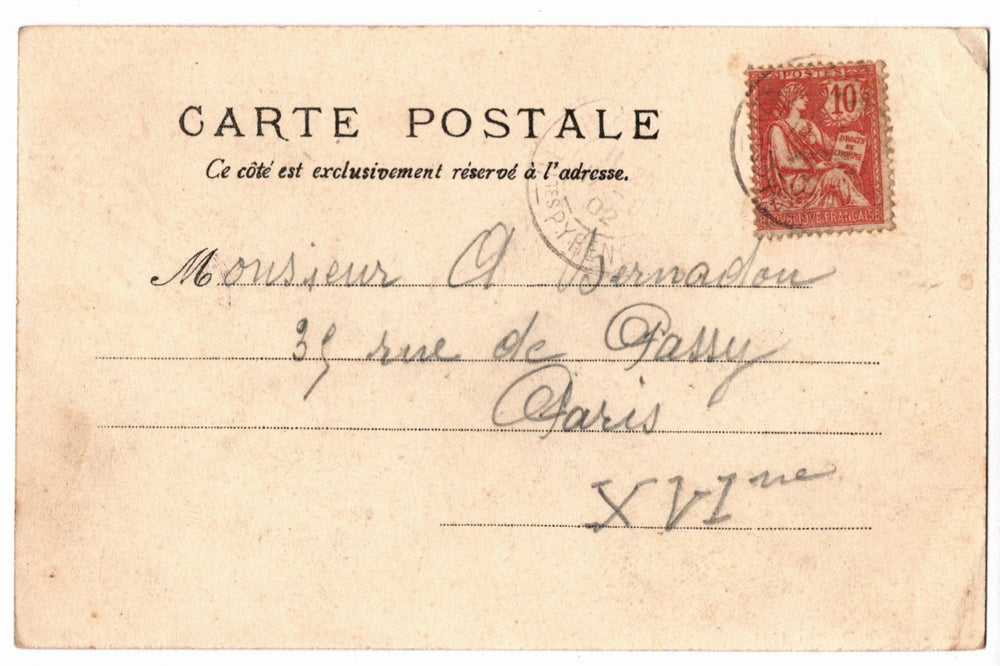 POSTES
10
DROITS
DE
L'HOMME
REPUBLIQUE FRANCAISE
CARTE POSTALE
Ce côté est exclusivement réservé à l'adresse.
02
TES PYREN
Monsieur A Bernadou
35 rue de Passy
Paris
XVI me